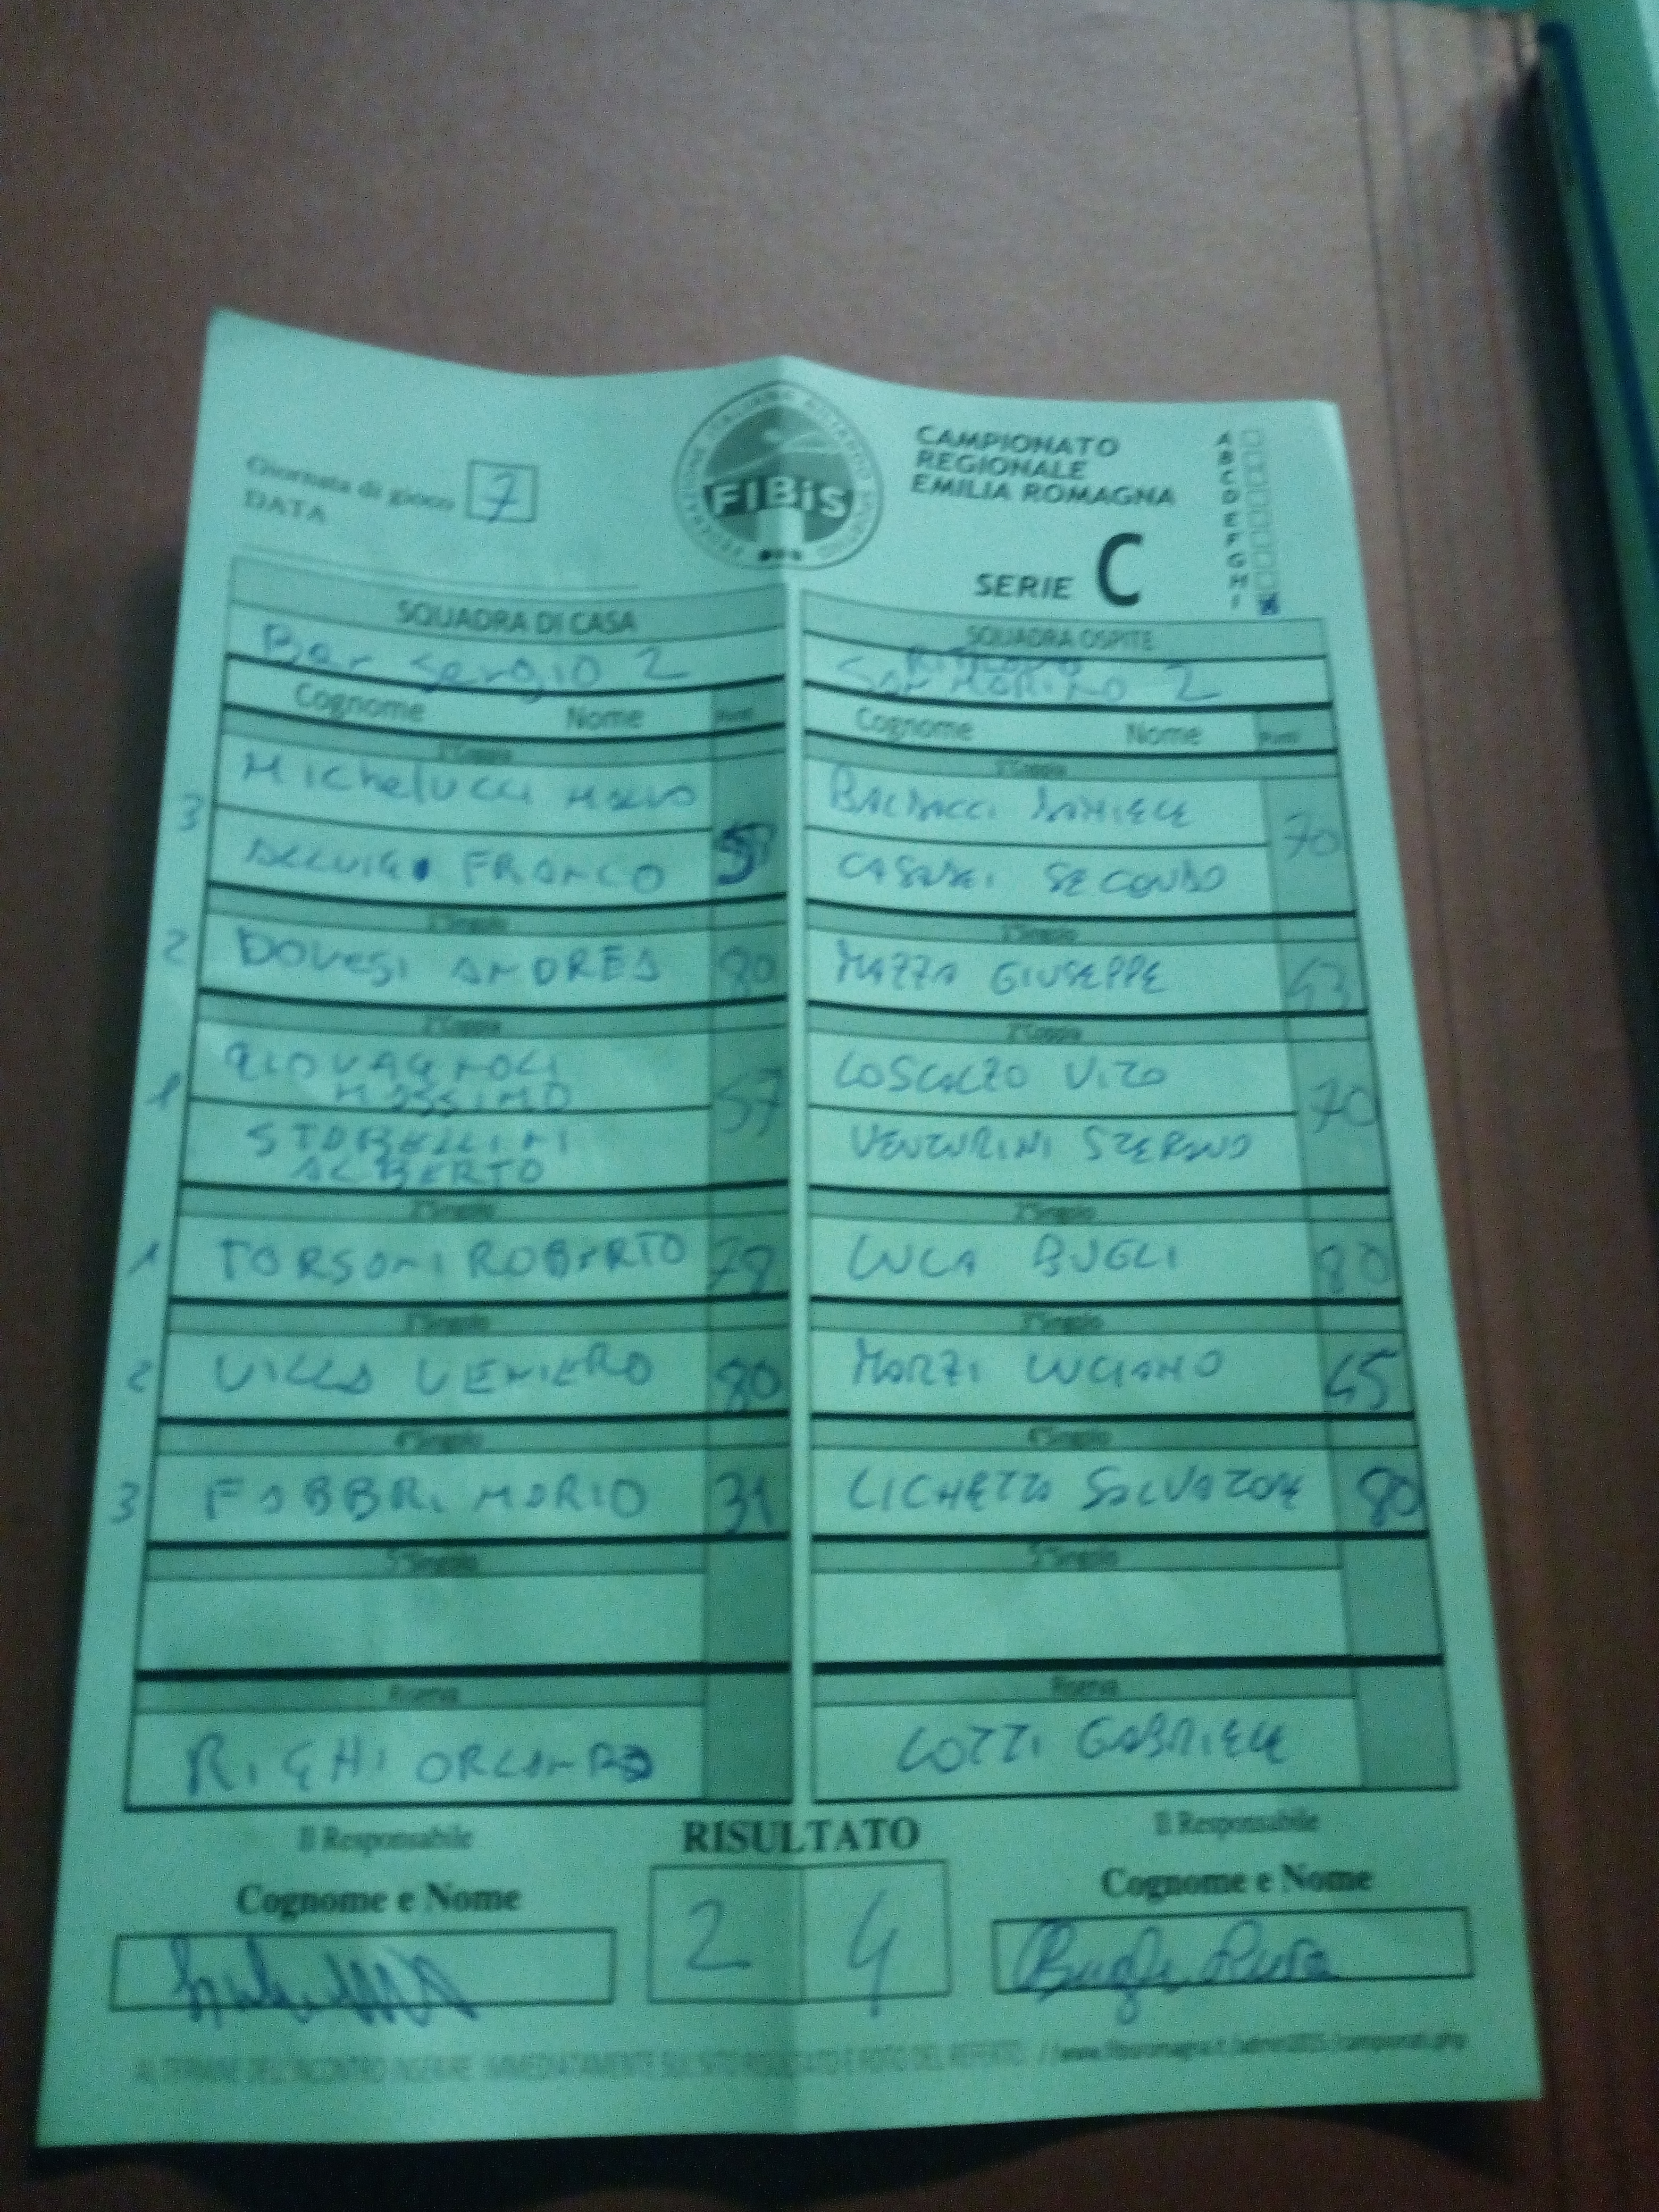 Giornata di gioco 7
DATA
FIBiS
CAMPIONATO
REGIONALE
EMILIA ROMAGNA
SERIE C
A
B
C
D
E
F
G
H
I
SQUADRA DI CASA
Bar Sergio 2
Cognome Nome Punti
1°Coppia
3 Michelucci
FRANCO
1°Singolo
2 DOVESI ANDREA 80
2°Coppia
1 GIOVAGNOLI
MASSIMO 57
ALBERTO
2°Singolo
1 TORSANI ROBERTO 78
3°Singolo
2 VILLA VENIERO 80
4°Singolo
3 FABBRI MARIO 31
5°Singolo
Riserva
RIGHI ORLANDO
SQUADRA OSPITE
San Marino 2
Cognome Nome Punti
1°Coppia
BALDACCI DANIELE 70
SECONDO
1°Singolo
MAZZA GIUSEPPE
2°Coppia
LOSCALZO VITO 70
VENTURINI STEFANO
2°Singolo
LUCA BUGLI 80
3°Singolo
MARZI LUCIANO 45
4°Singolo
SALVATORE 80
5°Singolo
Riserva
LOTTI GABRIELE
Il Responsabile
Cognome e Nome
RISULTATO
2 4
Il Responsabile
Cognome e Nome
AL TERMINE DELL'INCONTRO INSERIRE IMMEDIATAMENTE SUL SITO RISULTATO E FOTO DEL REFERTO